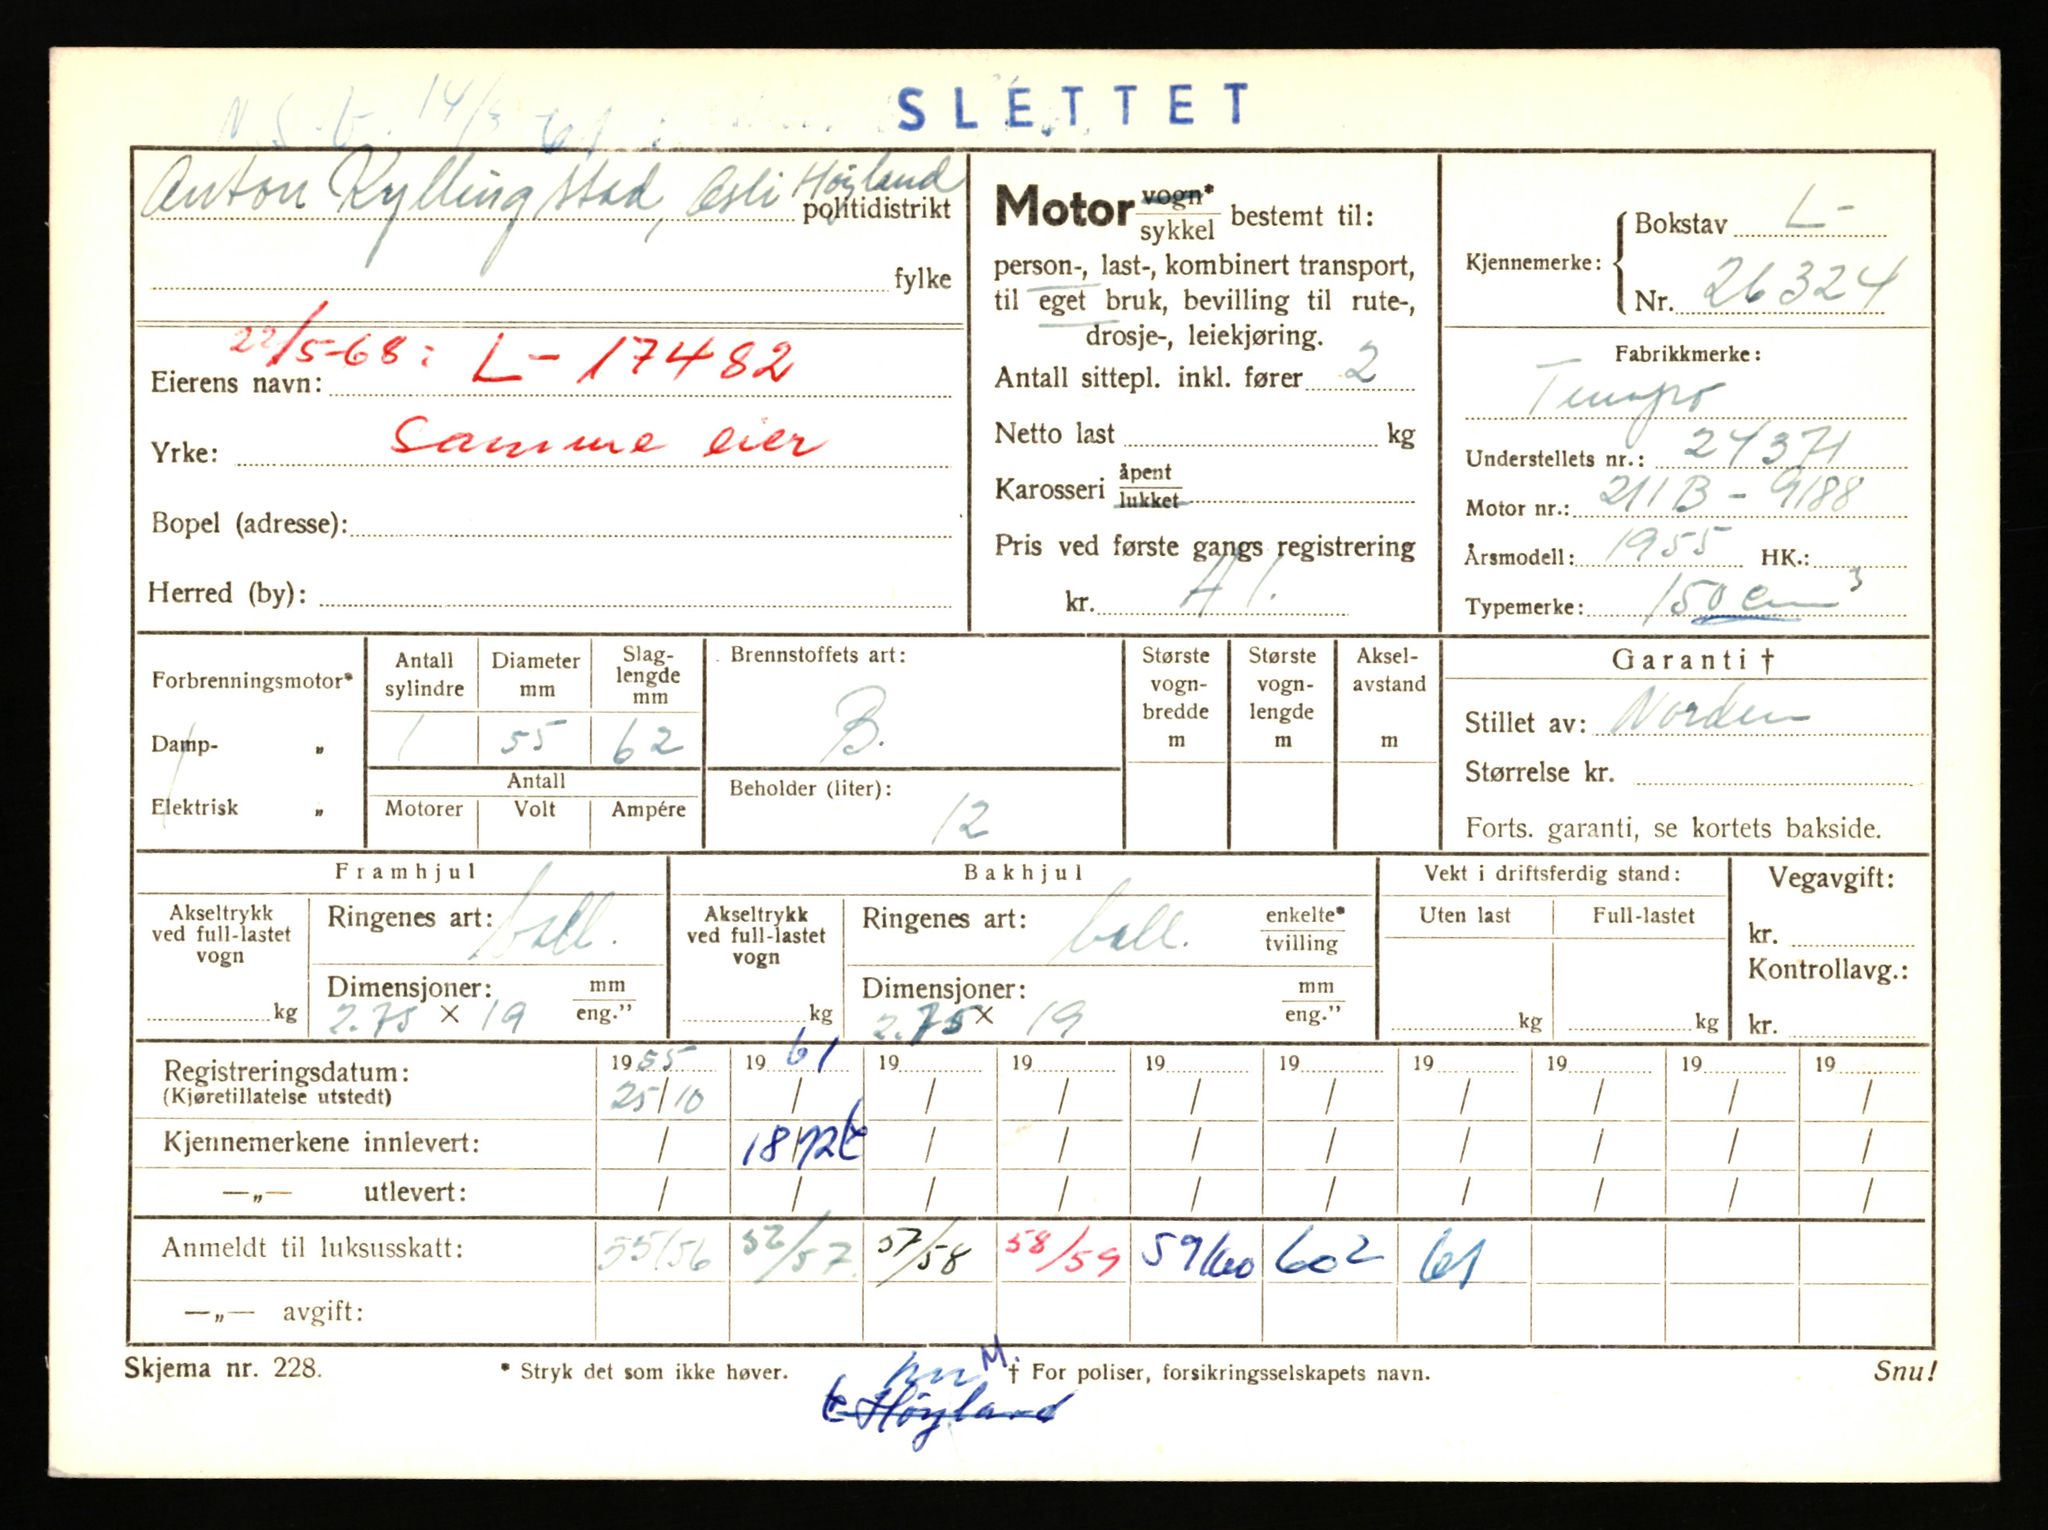 SLETTET
14/3 61
Anton Kyllingstad, Osli Høyland
politidistrikt
fylke
22/5-68: L- 17482
Eierens navn:
Yrke: Samme eier
Bopel (adresse):
Herred (by):
Motor vogn* sykkel bestemt til:
person-, last-, kombinert transport,
til eget bruk, bevilling til rute-,
drosje-, leiekjøring.
Antall sittepl. inkl. fører 2
Netto last kg
Karosseri åpent lukket
Pris ved første gangs registrering
kr. A1.
Kjennemerke: Bokstav L-
Nr. 26324
Fabrikkmerke:
Tempo
Understellets nr.: 24371
Motor nr.: 211B-9188
Årsmodell: 1955 HK.:
Typemerke: 150 cm³
Forbrenningsmotor*
Damp- „
Elektrisk „
Antall sylindre Diameter mm Slag-lengde mm
1 55 62
Antall
Motorer Volt Ampére
Brennstoffets art:
B.
Beholder (liter):
12
Største vogn-bredde m
Største vogn-lengde m
Aksel-avstand m
Garanti †
Stillet av: Norden
Størrelse kr.
Forts. garanti, se kortets bakside.
Framhjul
Akseltrykk ved full-lastet vogn
kg
Ringenes art: ball.
Dimensjoner: mm eng."
2.75 x 19
Bakhjul
Akseltrykk ved full-lastet vogn
kg
Ringenes art: ball. enkelte* tvilling
Dimensjoner: mm eng."
2.75 x 19
Vekt i driftsferdig stand:
Uten last Full-lastet
kg kg
Vegavgift:
kr.
Kontrollavg.:
kr.
Registreringsdatum: 1955 1961 19 19 19 19 19 19 19 19
(Kjøretillatelse utstedt) 25/10 / / / / / / / / /
Kjennemerkene innlevert: / 18/12 / / / / / / / /
—„— utlevert: / / / / / / / / / /
Anmeldt til luksusskatt: 55/56 56/57. 57/58 58/59 59/60 602 61
—„— avgift:
Skjema nr. 228. * Stryk det som ikke høver. M. † For poliser, forsikringsselskapets navn. Snu!
Høyland